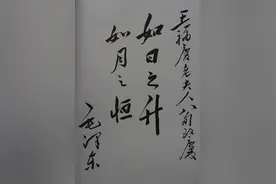 王福庆老夫人八旬致庆
如日之升
如月之恒
毛泽东